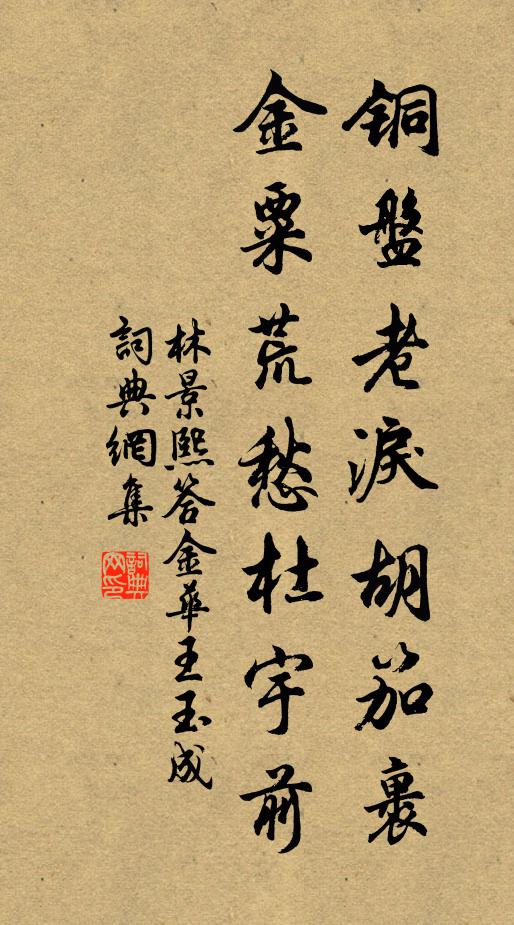 銅盤老淚胡笳裏
金粟荒愁杜宇前
林景熙答金華王玉成
詞典網集
詞典网印